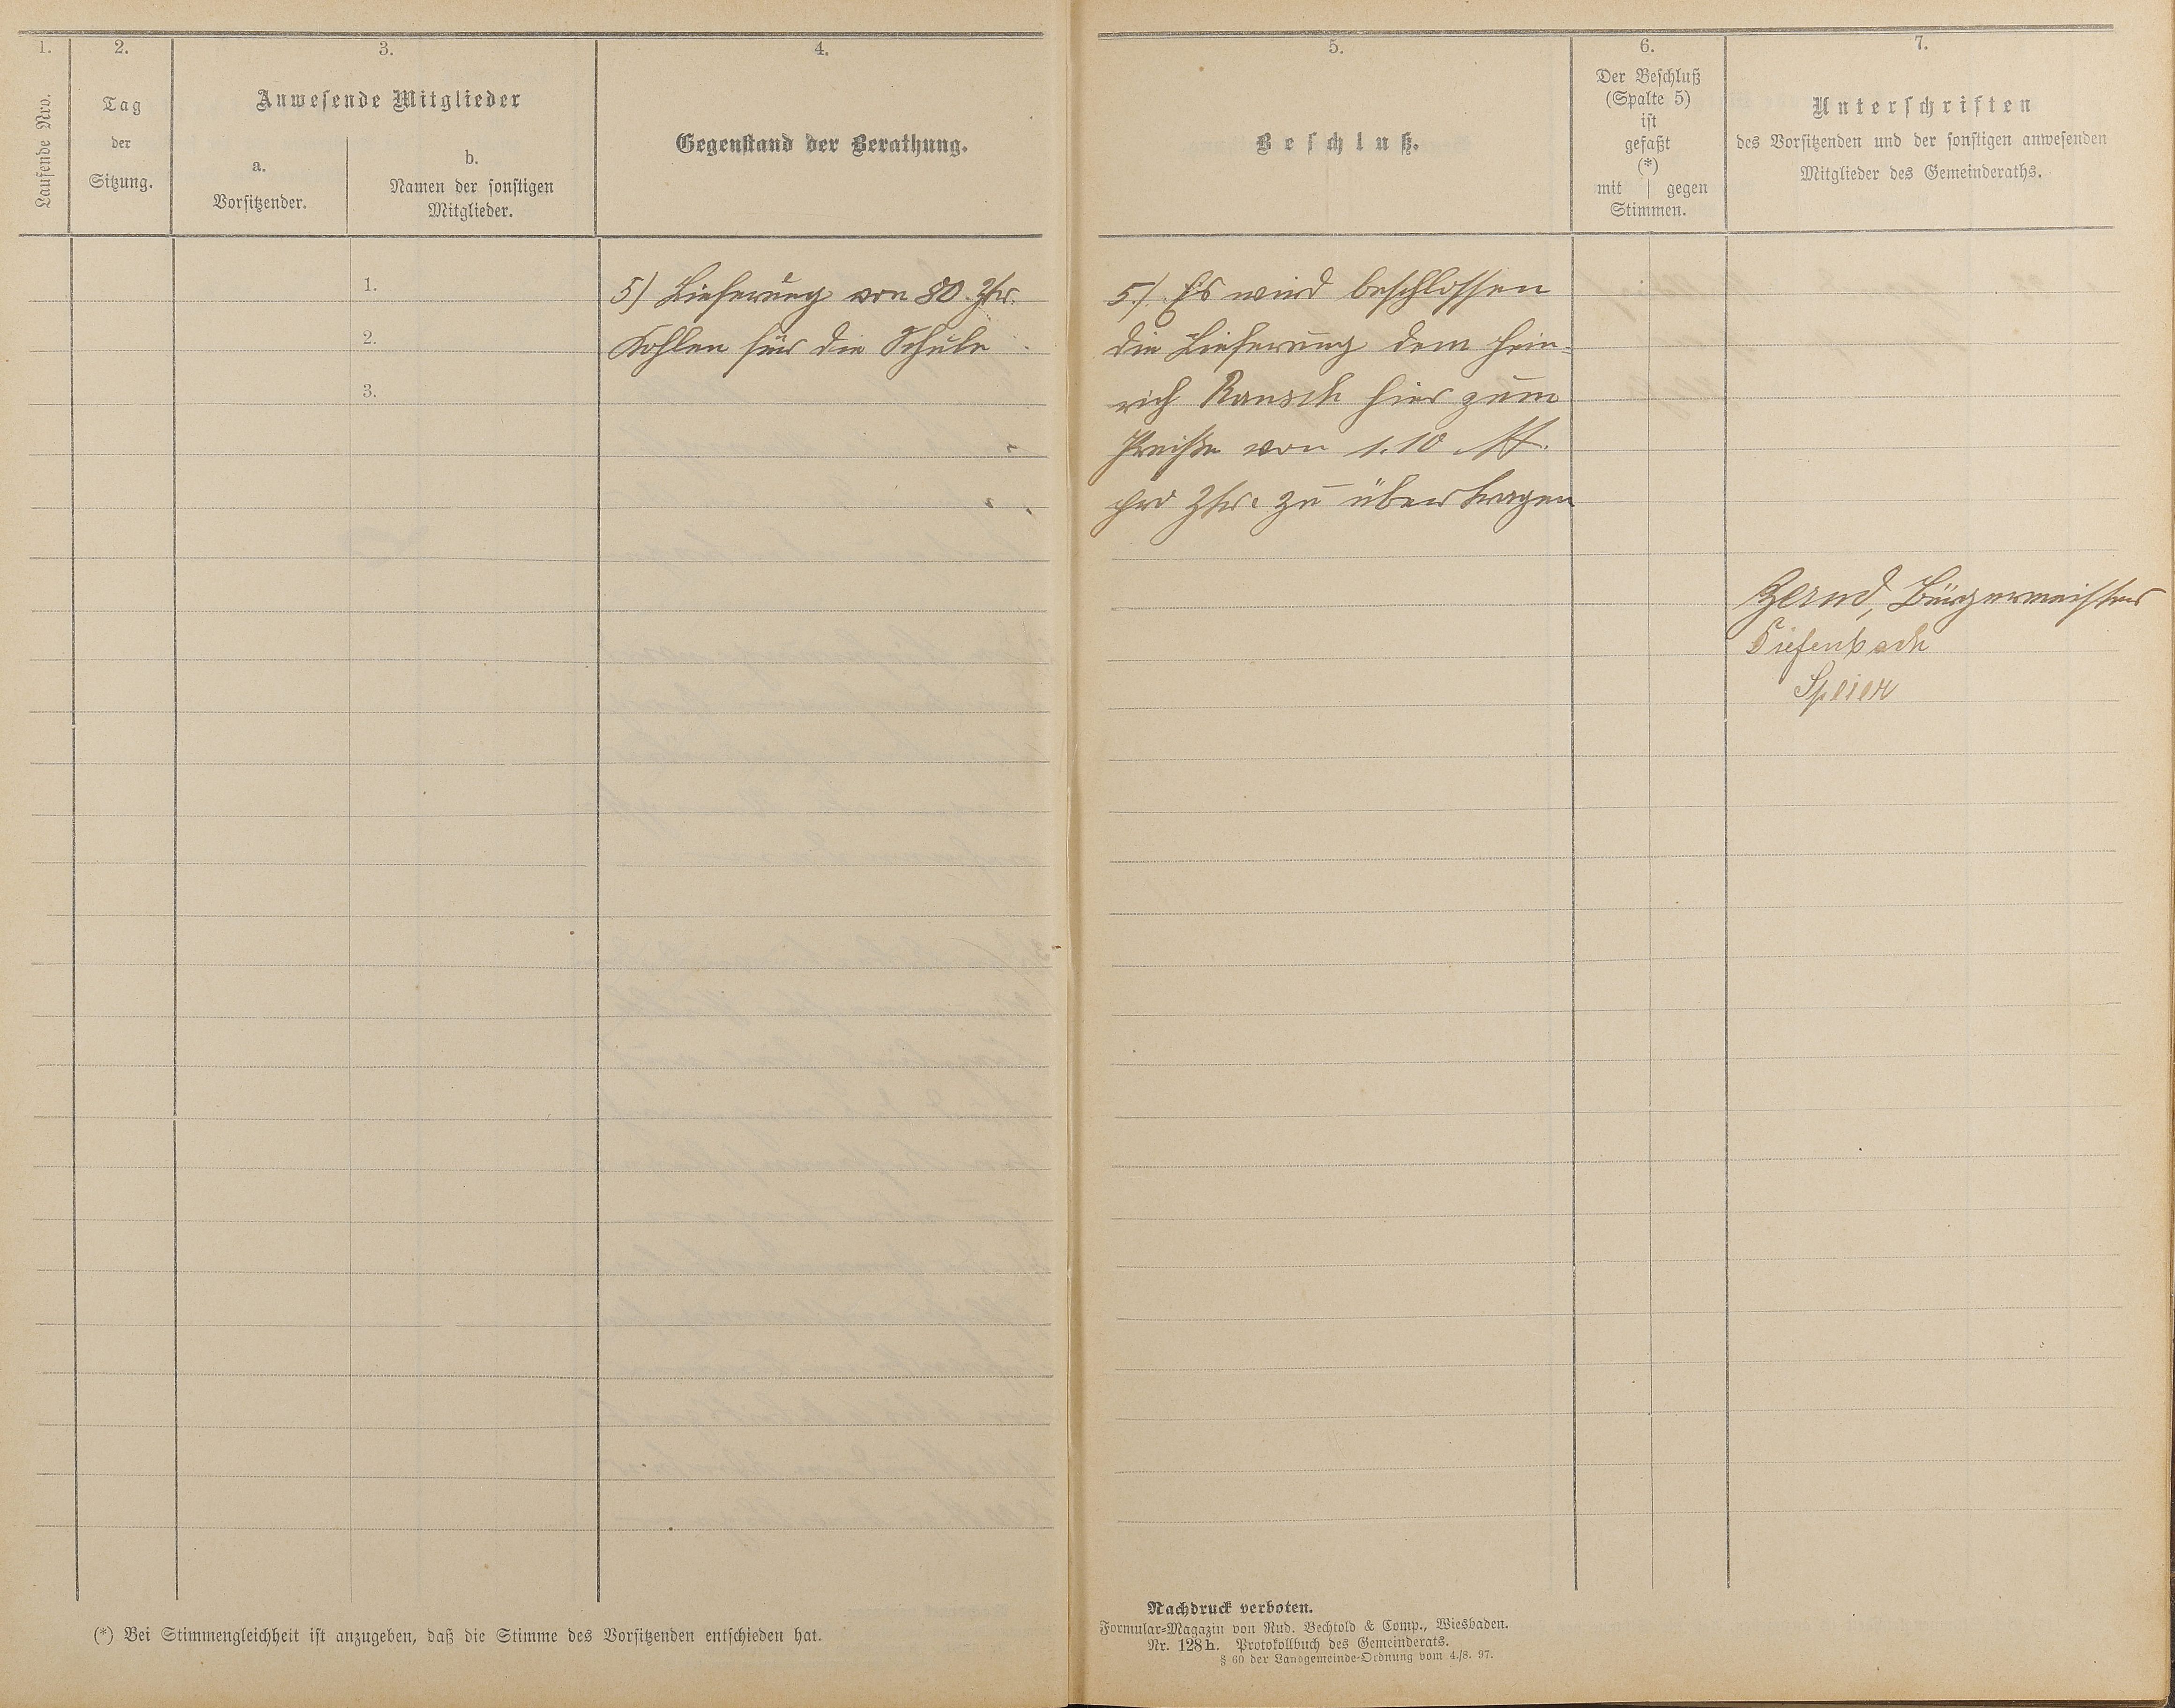 1.
2.
3.
4.
Laufende Nro.
Tag
der
Sitzung.
Anwesende Mitglieder
a.
Vorsitzender.
b.
Namen der sonstigen
Mitglieder.
Gegenstand der Berathung.
1.
2.
3.
5) Lieferung von 80 Ztr.
Kohlen für die Schule
(*) Bei Stimmengleichheit ist anzugeben, daß die Stimme des Vorsitzenden entschieden hat.
5.
6.
7.
Beschluß.
Der Beschluß
(Spalte 5)
ist
gefaßt
(*)
mit | gegen
Stimmen.
Unterschriften
des Vorsitzenden und der sonstigen anwesenden
Mitglieder des Gemeinderaths.
5.) Es wird beschlossen
die Lieferung dem Hein-
rich Rausch hier zum
Preiße von 1.10 M.
pro Ztr. zu übertragen
Bürgermeister
Tiefenbach
Speier
Nachdruck verboten.
Formular-Magazin von Rud. Bechtold & Comp., Wiesbaden.
Nr. 128h. Protokollbuch des Gemeinderats.
§ 60 der Landgemeinde-Ordnung vom 4./8. 97.